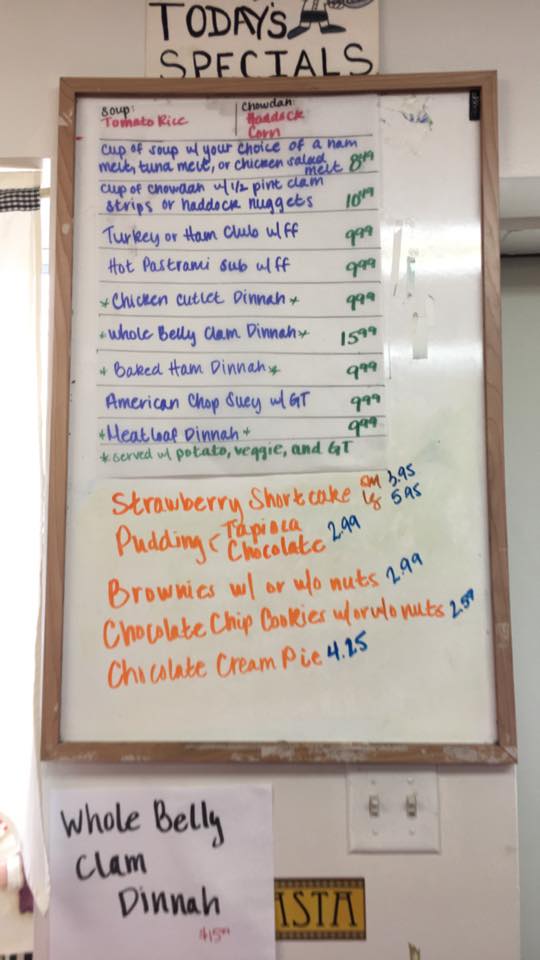 TODAY'S
SPECIALS
Soup:
Tomato Rice
Chowdah:
Haddock
Corn
Cup of soup w/ your choice of a ham
melt, tuna melt, or chicken salad
melt 8.49
Cup of chowdah w/ 1/2 pint clam
strips or haddock nuggets 10.49
Turkey or Ham Club w/ff 9.99
Hot Pastrami Sub w/ff 9.99
*Chicken Cutlet Dinnah* 9.99
*Whole Belly Clam Dinnah* 15.99
* Baked Ham Dinnah* 9.99
American Chop Suey w/ GT 9.99
*Meatloaf Dinnah* 9.99
*served w/ potato, veggie, and GT
Strawberry Shortcake sm 3.95
lg 5.95
Pudding < Tapioca
Chocolate 2.99
Brownies w/ or w/o nuts 2.99
Chocolate Chip Cookies w/ or w/o nuts 2.59
Chicolate Cream Pie 4.25
Whole Belly
Clam
Dinnah
$15.99